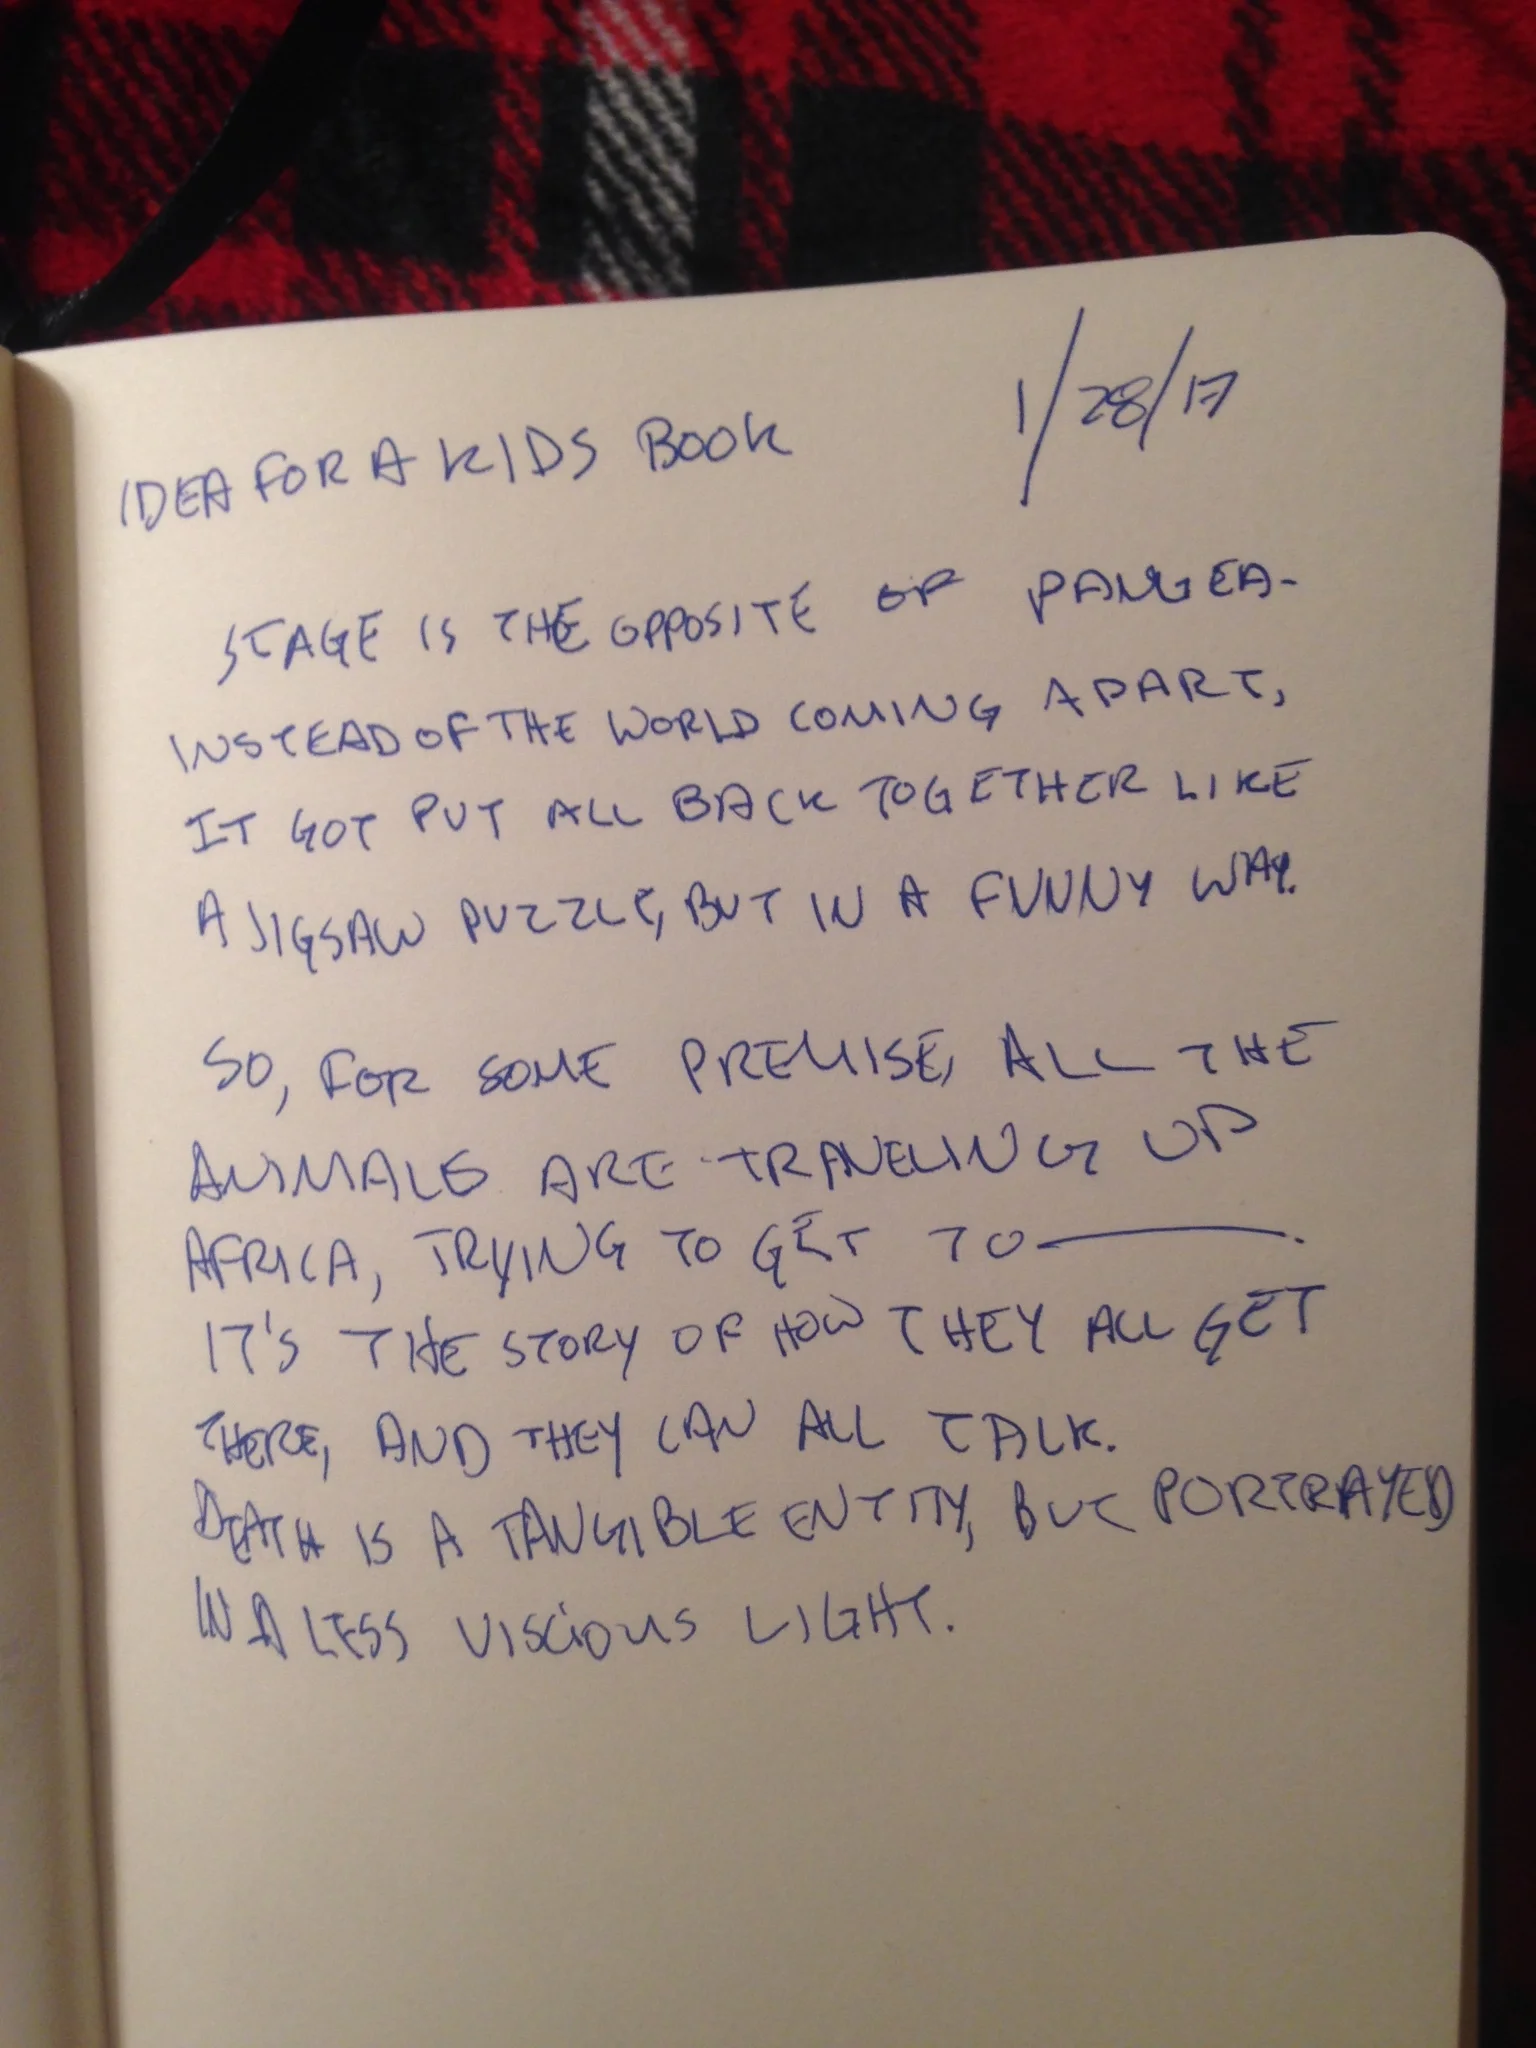 IDEA FOR A KIDS BOOK 1/28/17
STAGE IS THE OPPOSITE OF PANGEA-
INSTEAD OF THE WORLD COMING APART,
IT GOT PUT ALL BACK TOGETHER LIKE
A JIGSAW PUZZLE, BUT IN A FUNNY WAY.
SO, FOR SOME PREMISE, ALL THE
ANIMALS ARE TRAVELING UP
AFRICA, TRYING TO GET TO ————.
IT'S THE STORY OF HOW THEY ALL GET
THERE, AND THEY CAN ALL TALK.
DEATH IS A TANGIBLE ENTITY, BUT PORTRAYED
IN A LESS VISCIOUS LIGHT.